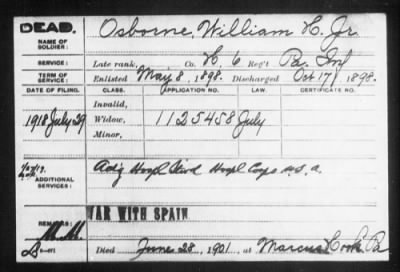 DEAD.
NAME OF SOLDIER: Osborne, William H. Jr.
SERVICE: Late rank, Co. H, 6 Reg't Pa. Inf
TERM OF SERVICE: Enlisted May 8, 1898. Discharged Oct 17, 1898.
DATE OF FILING. CLASS. APPLICATION NO. LAW. CERTIFICATE NO.
Invalid,
1918 July 29 Widow, 1125458 July
Minor,
ADDITIONAL SERVICES: Hospl Corps U.S.A.
REMARKS: WAR WITH SPAIN
Died June 28, 1901, at Marcus Hook Pa